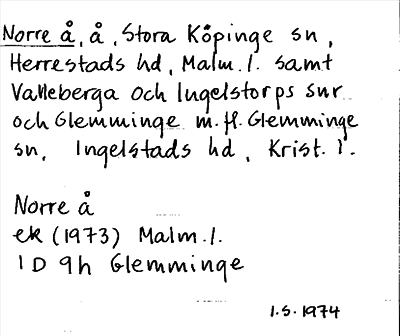 Norre å, å, Stora Köpinge sn,
Herrestads hd, Malm. l. samt
Valleberga och Ingelstorps snr
och Glemminge m. fl. Glemminge
sn, Ingelstads hd, Krist. l.
Norre å
ek (1973) Malm. l.
1D 9h Glemminge
1.5.1974